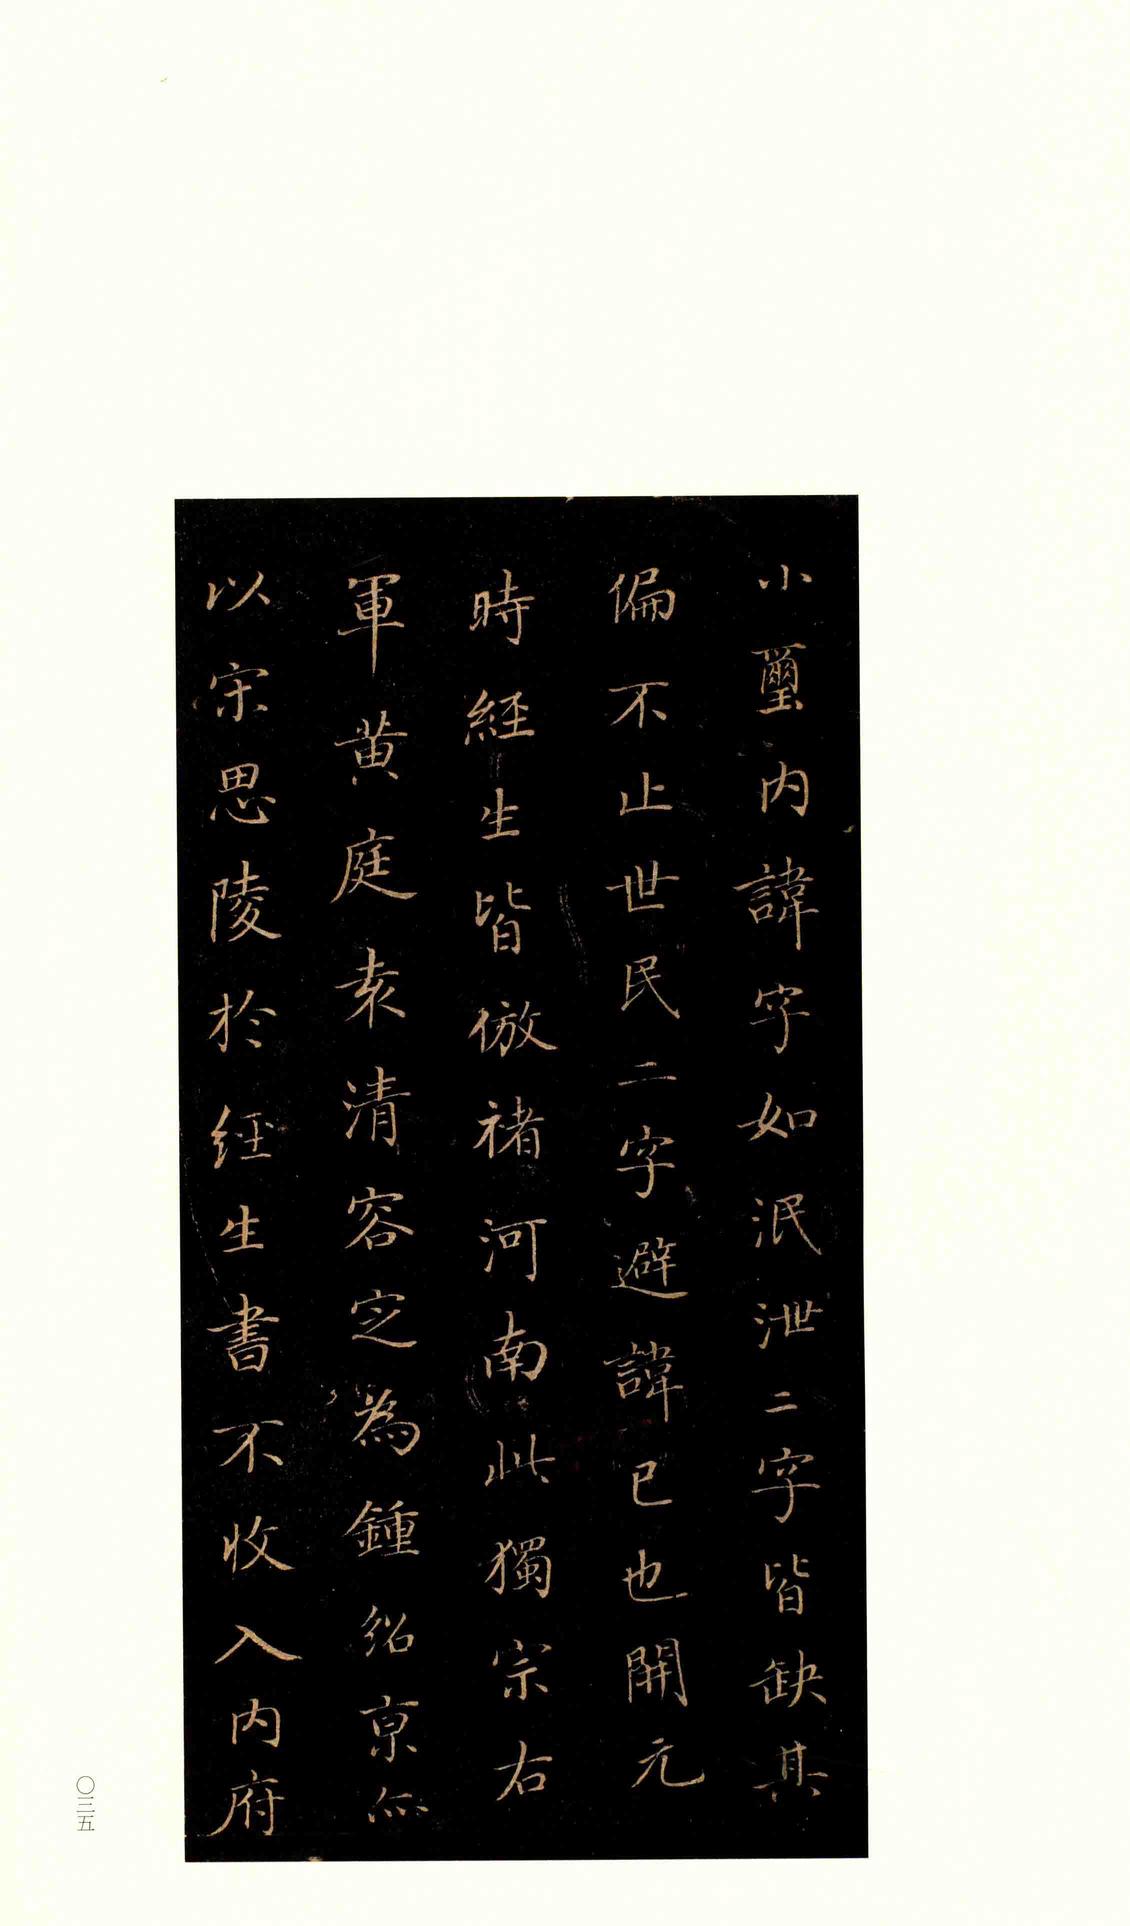 小璽内諱字如泯泄二字皆缺其
偏不止世民二字避諱已也開元
時経生皆倣褚河南此獨宗右
軍黄庭袁清容定為鍾紹京
以宋思陵於経生書不收入内府
〇三五